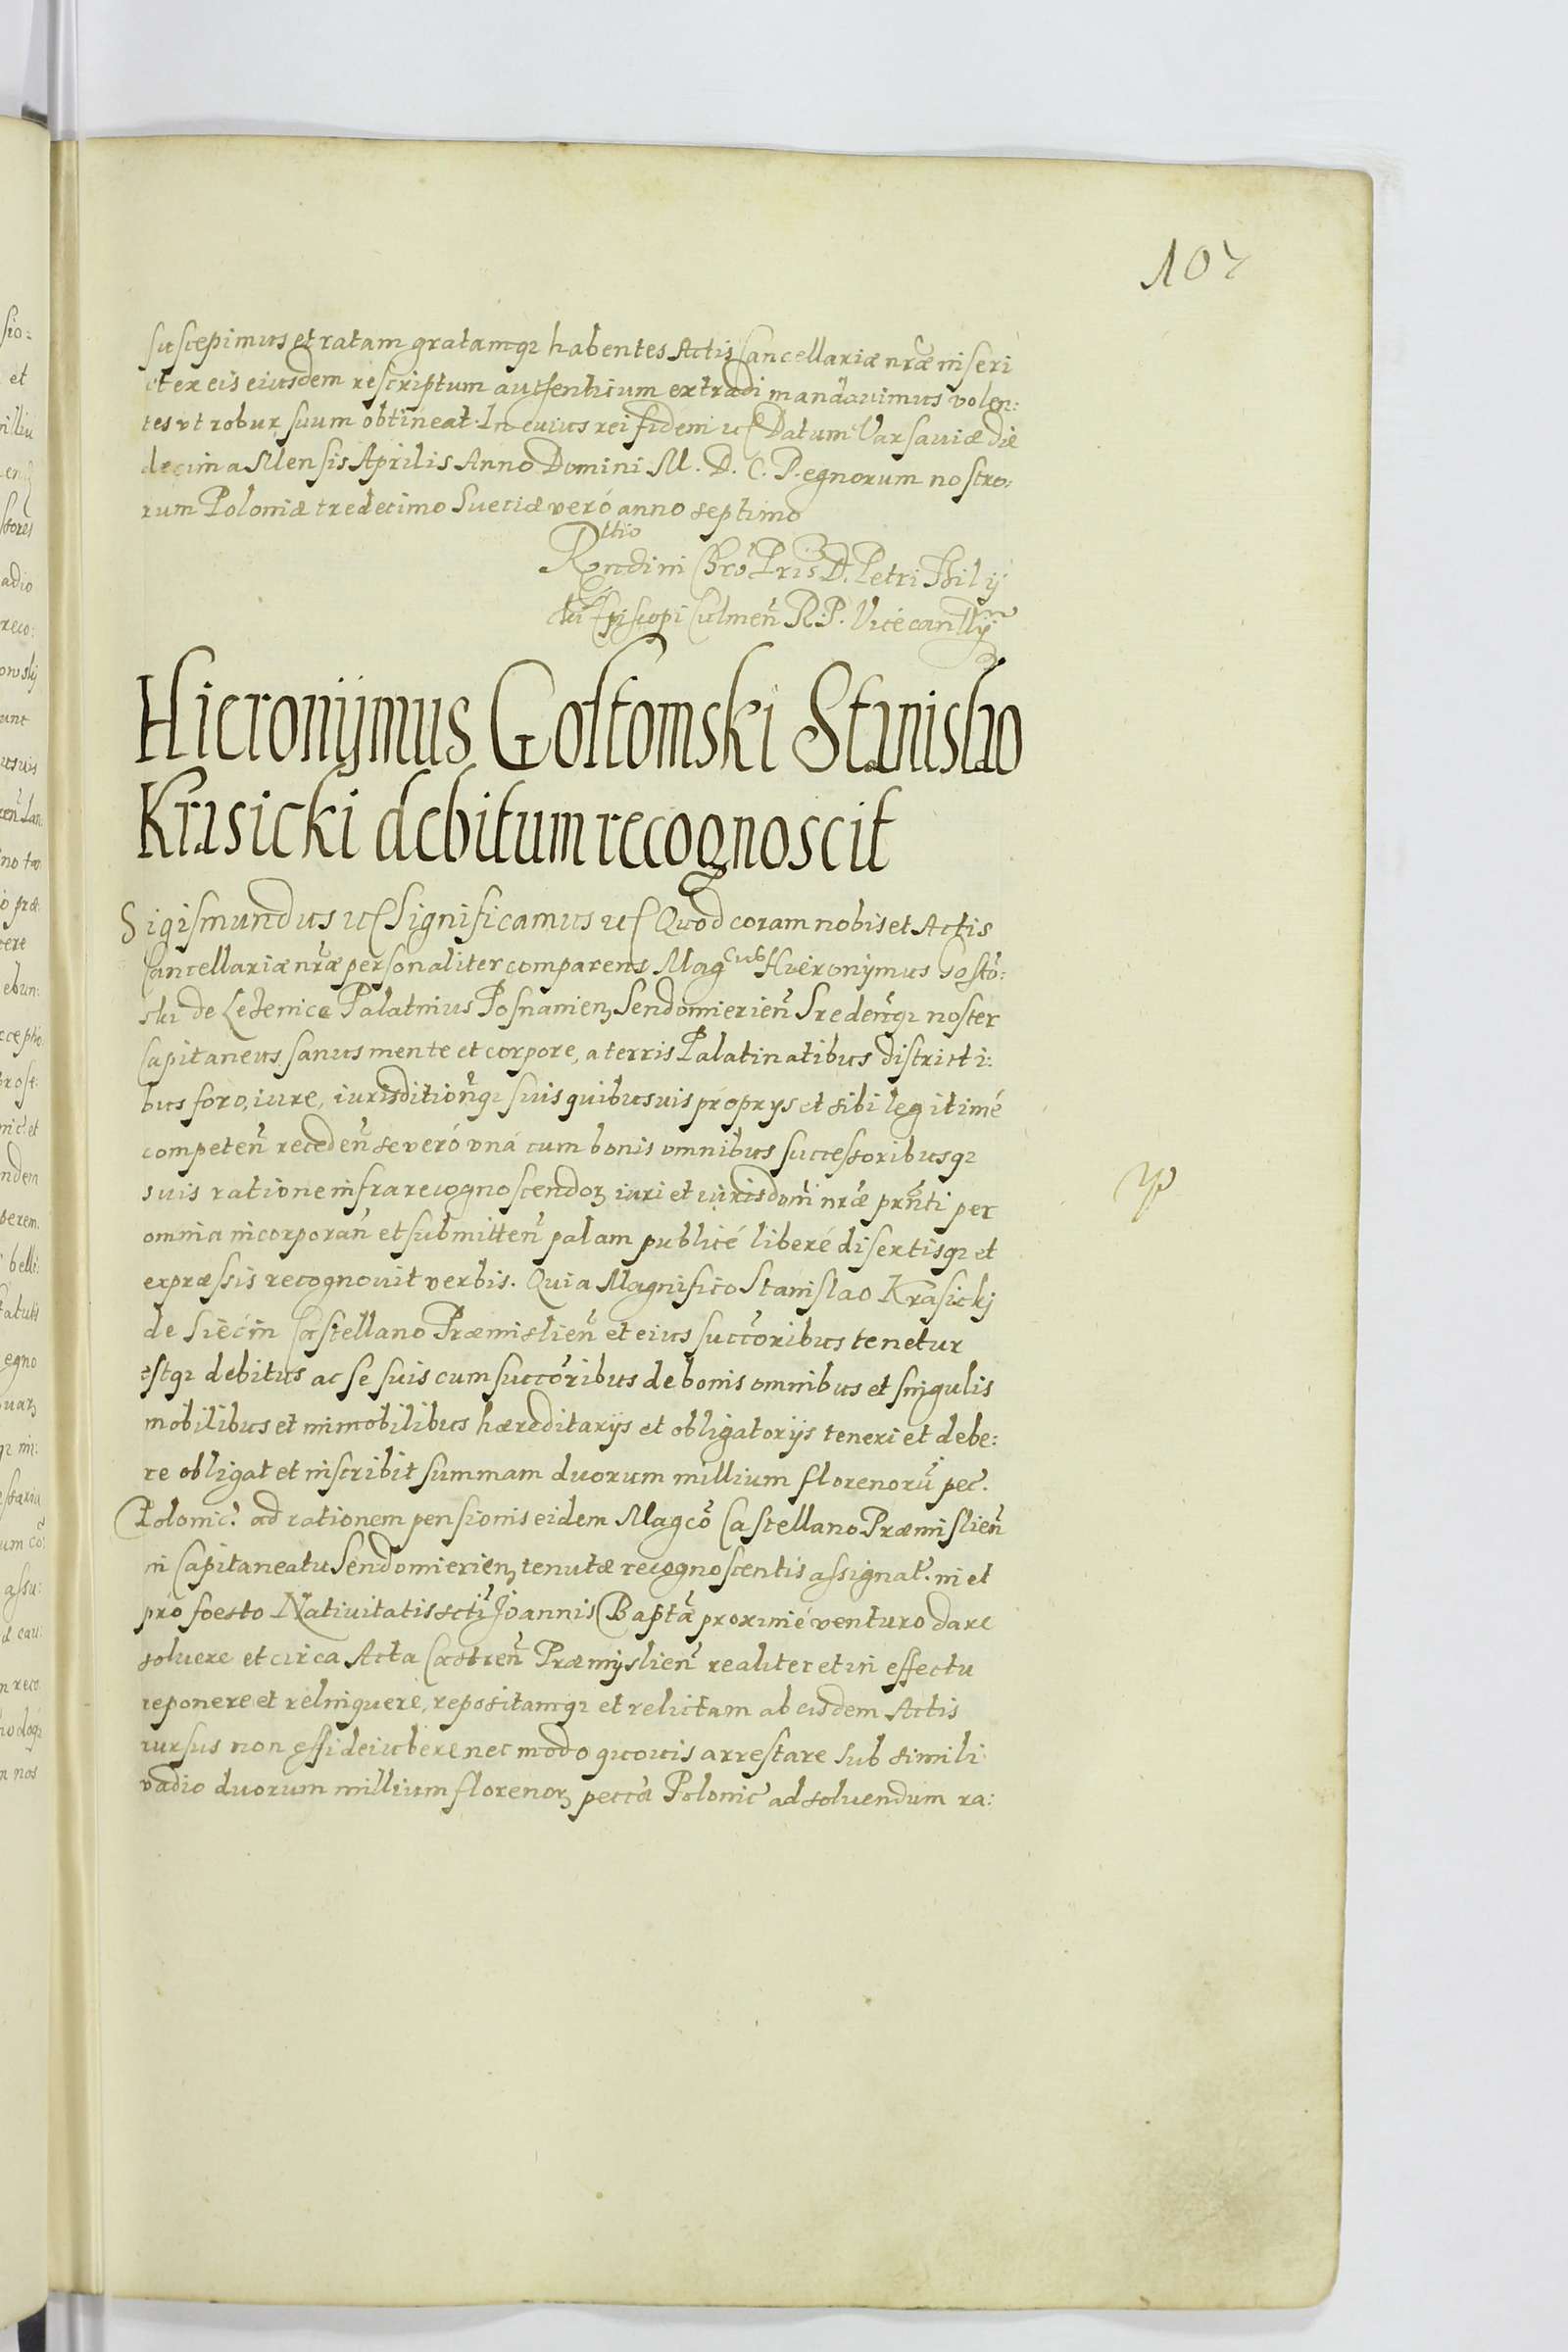 107
suscepimus et ratam gratamq₃ habentes Actis Cancellariæ nr̃æ inseri
et ex eis eiusdem rescriptum autenticum extradi mandavimus volen:
tes vt robur suum obtineat. In cuius rei fidem etc Datum Varsaviæ die
decima Mensis Aprilis Anno Domini M. D. C. Regnorum nostro:
rum Poloniæ tredecimo Sueciæ veró anno septimo
Rltio
Rõndiñi Chrõ Pris D. Petri Thilij
cki Episcopi Culmeñ R. P. Vicecancllÿ
Hieronijmus Gostomski Stanislao
Krasicki debitum recognoscit
Sigismundus etc Significamus etc Quod coram nobis et Actis
Cancellariæ nr̃æ personaliter comparens Magcus Hieronijmus Gostõ:
ski de Lezenice Palatinus Posnanienʒ Sendomierieñ Sredeñq₃ noster
Capitaneus sanus mente et corpore, a terris Palatinatibus districti:
bus foro, iure, iurisditioñq₃ suis quibusuis proprys et sibi legitimé
competeñ recedeñ se veró vná cum bonis omnibus successoribusq₃
suis ratione infrarecognoscendoʒ iuri et iurisdoñi nr̃æ prñti per
omnia incorporañ et submitteñ palam publicé liberé disertisq₃ et
expræssis recognouit verbis. Quia Magnifico Stanislao Krasickj
de Siecin Castellano Præmislieñ et eius succõribus tenetur
estq₃ debitus ac se suis cum succõribus de bonis omnibus et singulis
mobilibus et immobilibus hæreditarijs et obligatorijs teneri et debe:
re obligat et inscribit summam duorum millium florenorũ pec.
Polonic. ad rationem pensionis eidem Magcõ Castellano Præmislieñ
in Capitaneatu Sendomierienʒ tenutæ recognoscentis assignat. in et
pro foesto Nativitatis scti Joannis Baptã proximé venturo dare
soluere et circa Acta Castreñ Præmijslieñ realiter et in effectu
reponere et relinquere, repositamq₃ et relictam ab eisdem Actis
rursus non effideiubere nec modo quouis arrestare sub simili
vadio duorum millium florenoʒ peccã Polonic ad soluendum ra: